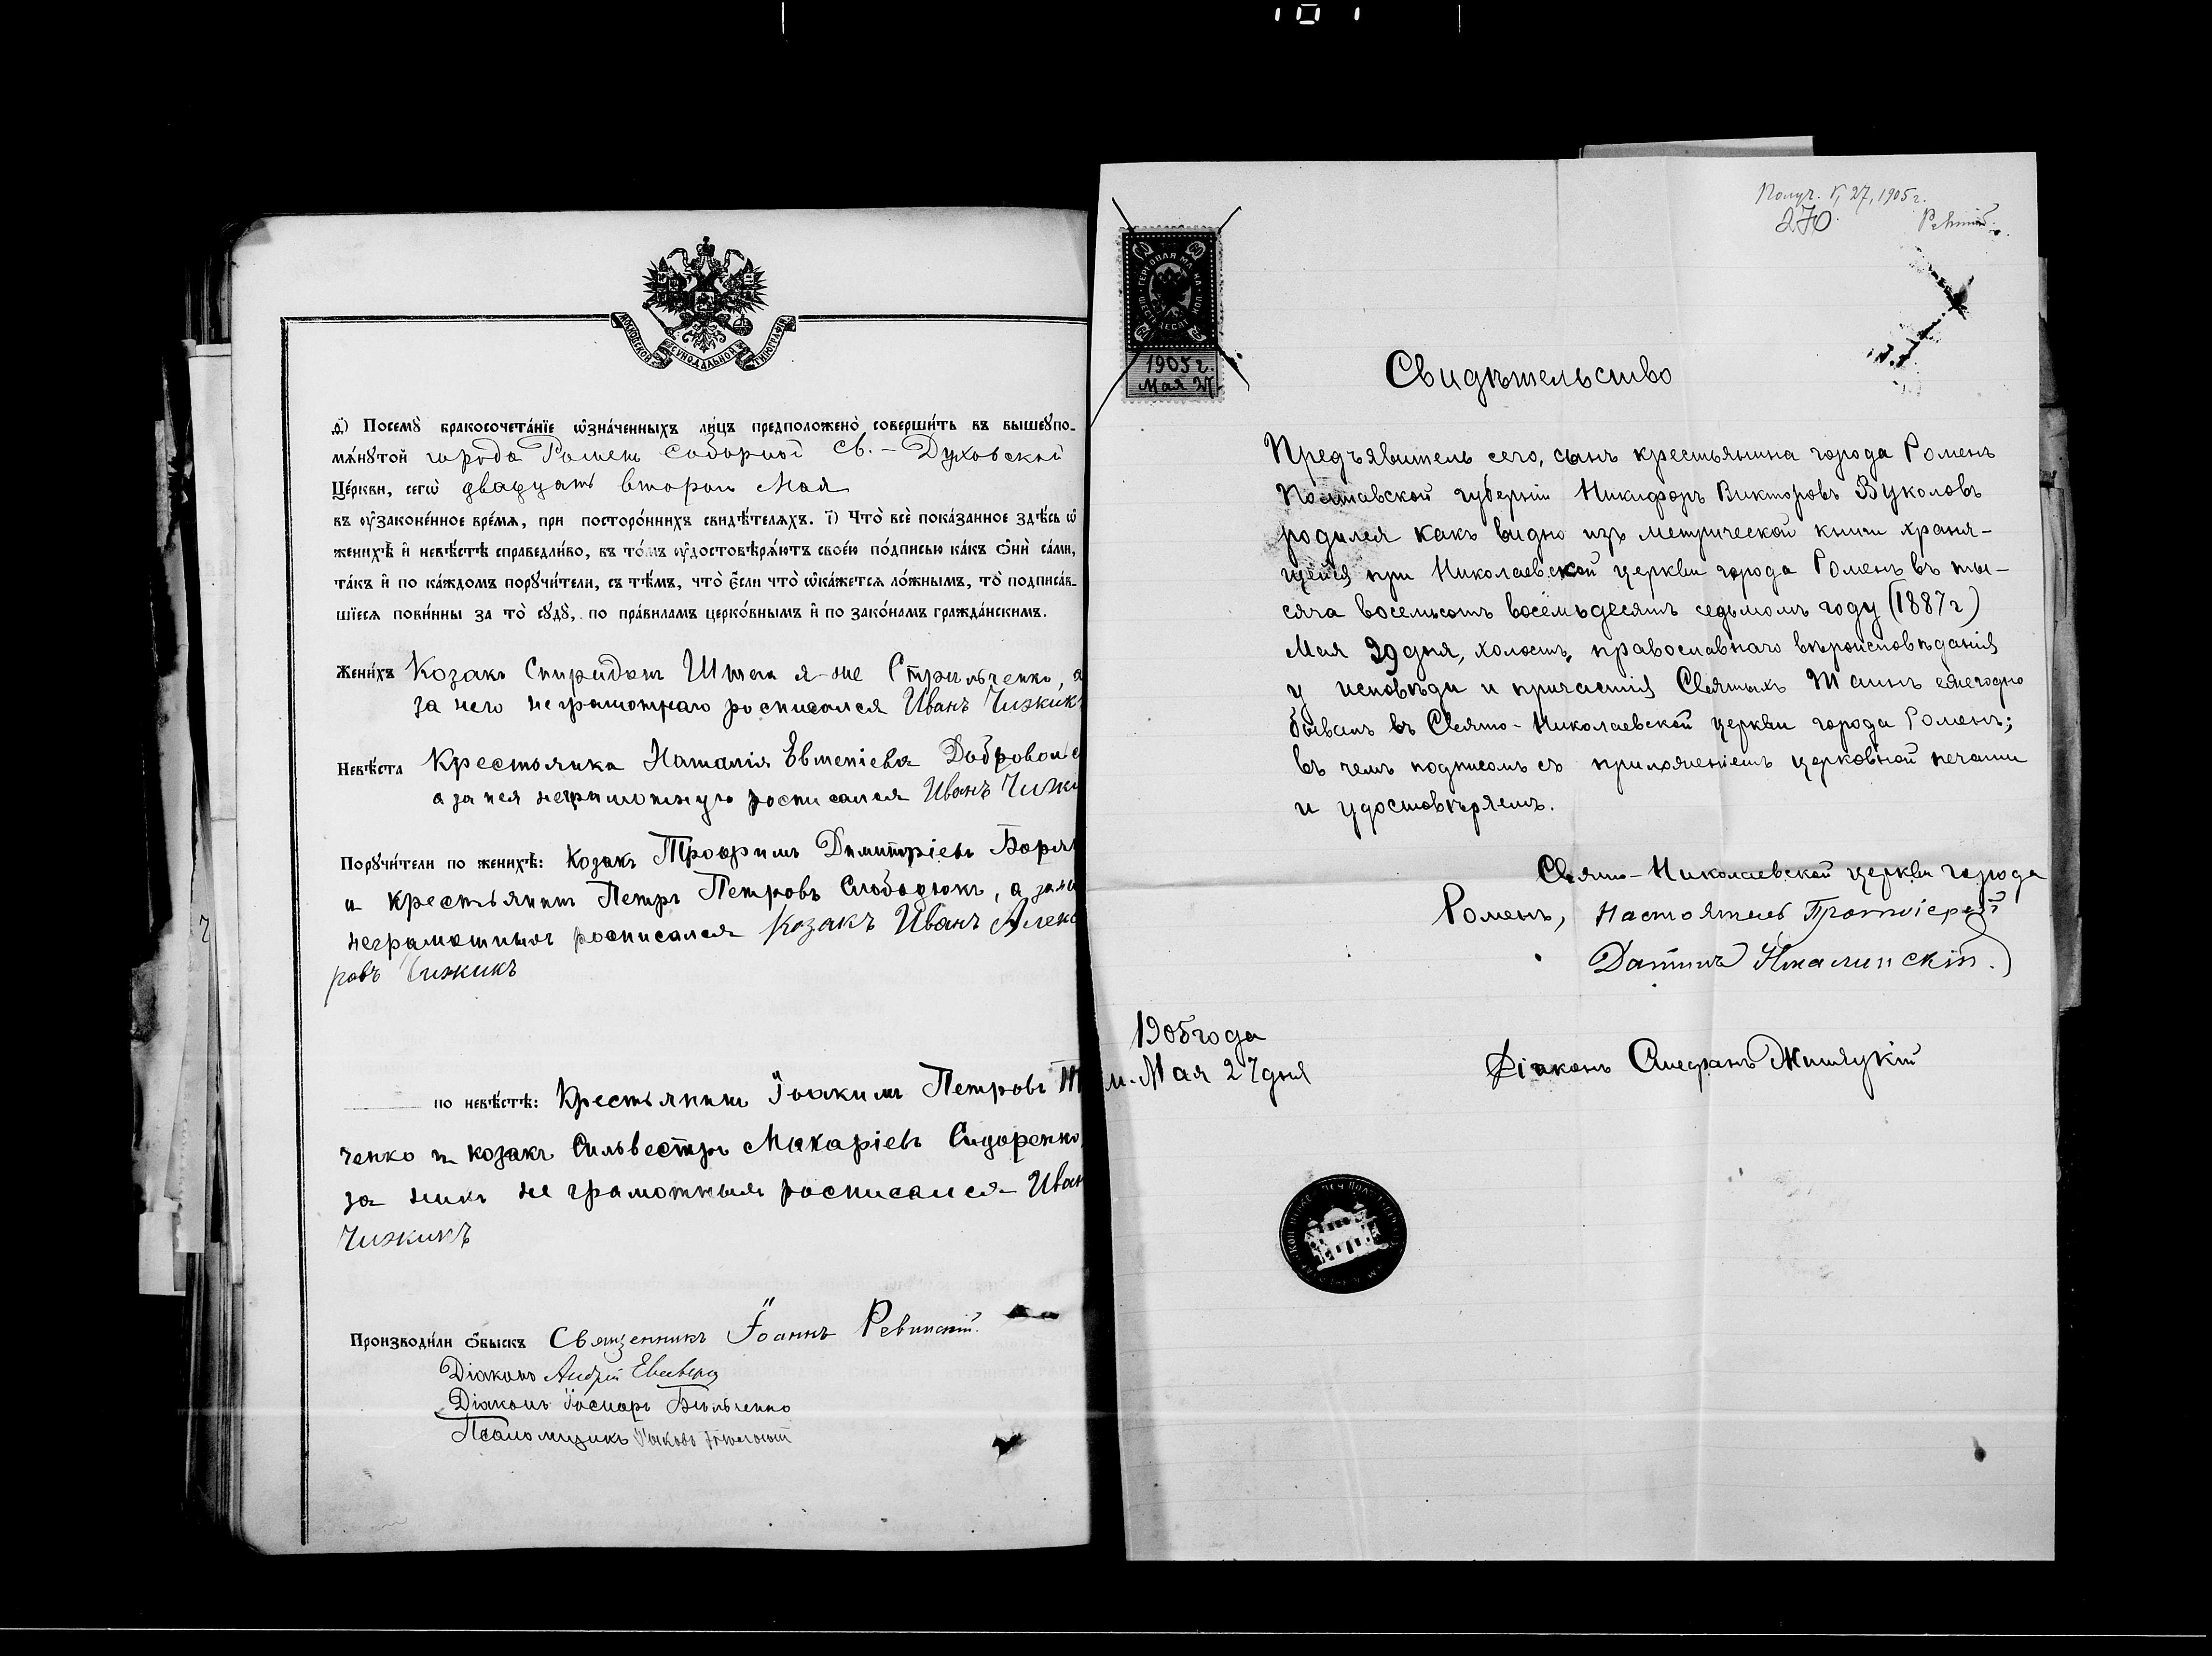 МОСКОВСКОЙ СѴНОДАЛЬНОЙ ТИПОГРАФІИ
д҃) Посемꙋ̀ бракосочета́нїе ѡ҆зна́ченныхъ ли́цъ предположено̀ соверши́ть въ вышеꙋпо-
мѧ́нꙋтой города Роменъ соборной Св.-Духовской
Це́ркви, сегѡ̀ двадцать второго Мая
въ ᲂу҆законе́нное вре́мѧ, при посторо́ннихъ свидѣ́телѧхъ. і҃) Что̀ всѐ пока́занное здѣ́сь ѡ҆
женихѣ̀ и҆ невѣ́стѣ справедли́во, въ то́мъ ᲂу҆достовѣрѧ́ютъ свое́ю по́дписью ка́къ ѻ҆нѝ са́ми,
та́къ и҆ по ка́ждомъ порꙋчи́тели, съ тѣ́мъ, что̀ є҆́сли что̀ ѡ҆ка́жется ло́жнымъ, то̀ подписа́в-
шїеся пови́нны за то̀ сꙋдꙋ̀, по пра́виламъ церко́внымъ и҆ по зако́намъ гражда́нскимъ.
Жени́хъ Козакъ Спиридонъ Стрильченко, а
за него неграмотнаго росписался Иванъ Чижикъ
Невѣ́ста Крестьянка Наталія Евменіева
а за нея неграмотную росписался Иванъ Чижи
Порꙋчи́тели по женихѣ̀: Козакъ Трофимъ Димитріевъ
и крестьянинъ Петръ Петровъ Слободюкъ, а за ни
неграмотныхъ росписался Козакъ Иванъ Алекс
ровъ Чижикъ
по невѣ́стѣ: Крестьянинъ Іоакимъ Петровъ
ченко и козакъ Сильвестръ Макаріевъ Сидоренко,
за нихъ не грамотныхъ росписался Иван
Чижикъ
Производи́ли ѻ҆́быскъ Священникъ Іоаннъ Ревинскій.
Діаконъ Андрей
Діаконъ Бѣльченко
Псаломщикъ Іаковъ
Получ. V, 27, 1905 г.
270
ГЕРБОВАЯ МАРКА ШЕСТЬДЕСЯТ КОП
1905 г.
Мая 27
Свидѣтельство
Предъявитель сего, сынъ крестьянина города Роменъ
Полтавской губерніи Никифоръ Викторовъ Вуколовъ
родился какъ видно изъ метрической книги храня-
щейся при Николаевской церкви города Роменъ въ ты-
сяча восемьсотъ восемьдесятъ седьмомъ году (1887 г)
Мая 29 дня, холостъ, православнаго вѣроисповѣданія
у исповѣди и причастія Святыхъ Таинъ ежегодно
бывалъ въ Свято-Николаевской церкви города Роменъ;
въ чемъ подписомъ съ приложеніемъ церковной печати
и удостовѣряемъ.
Свято-Николаевской церкви города
Роменъ, Настоятель Протоіерей
1905 года
м. Мая 27 дня
Діаконъ Стефанъ